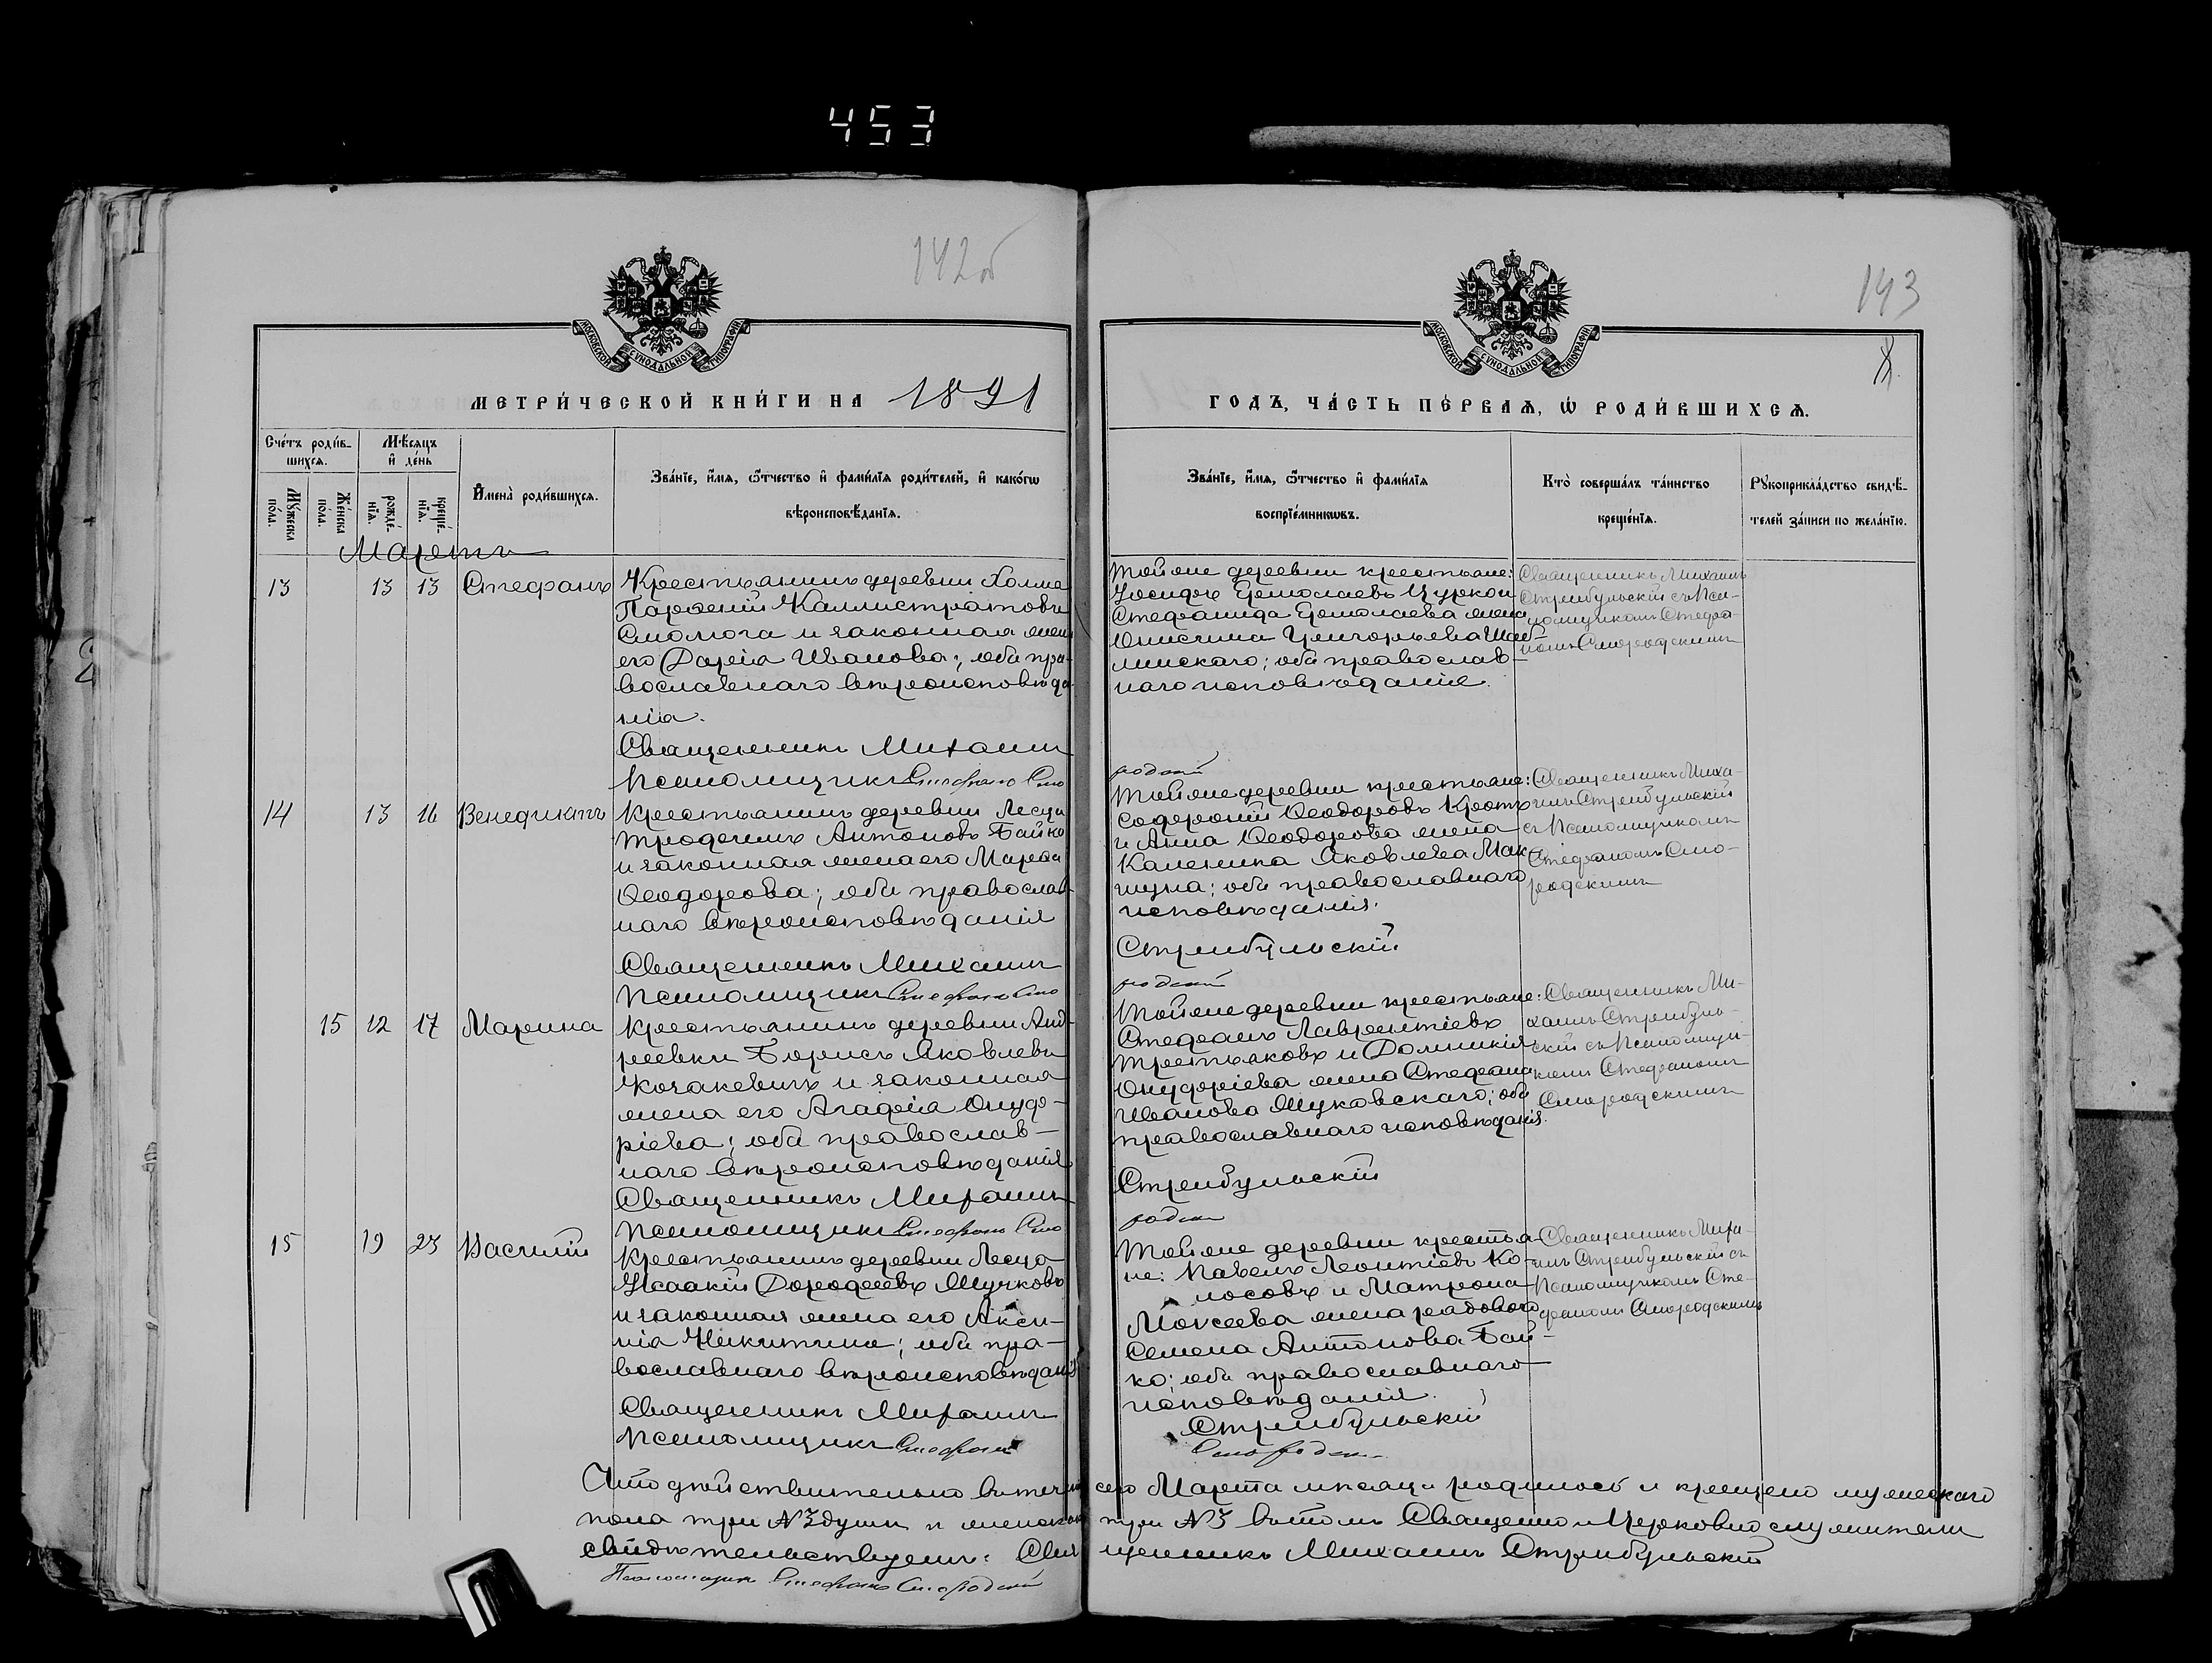 453
142об
143
МОСКОВСКОЙ СѴНОДАЛЬНОЙ ТИПОГРАФІИ
МОСКОВСКОЙ СѴНОДАЛЬНОЙ ТИПОГРАФІИ
МЕТРИ́ЧЕСКОЙ КНИ́ГИ НА 1891
ГОДЪ, ЧА́СТЬ ПЕ́РВАѦ, Ѡ҆ РОДИ́ВШИХСѦ.
Сче́тъ роди́в-
шихсѧ.
Мꙋ́жеска
по́ла.
Же́нска
по́ла.
Мѣ́сѧцъ
и҆ де́нь
рожде́-
нїѧ.
креще́-
нїѧ.
И҆мена̀ роди́вшихсѧ.
Зва́нїе, и҆́мѧ, ѻ҆́тчество и҆ фами́лїѧ роди́телей, и҆ како́гѡ
вѣроисповѣ́данїѧ.
Зва́нїе, и҆́мѧ, ѻ҆́тчество и҆ фами́лїѧ
воспрїе́мникѡвъ.
Кто̀ соверша́лъ та́инство
креще́нїѧ.
Рꙋкоприкла́дство свидѣ́-
телей за́писи по жела́нїю.
Мартъ
13 13 13 Стефанъ
Крестьянинъ деревни
Парѳеній Каллистратовъ
и законная жена
его Дарія Иванова; оба пра-
вославнаго вѣроисповѣда
нія.
Священникъ Михаилъ
Псаломщикъ Стефанъ Смо
Той же деревни крестьяне:
Іосифъ Ермолаевъ Цуркон
Стефанида Ермолаева жена
Григорьева
оба православ-
наго исповѣданія.
родскій
Священникъ Михаилъ
Стрибульскій съ Пса-
ломщикомъ Стефа-
номъ Смородскимъ
14 13 16 Венедиктъ
Крестьянинъ деревни
Антоновъ Байко
и законная жена его Марѳа
Ѳеодорова; оба православ-
наго вѣроисповѣданія
Священникъ Михаилъ
Псаломщикъ Стефанъ Смо
Той же деревни крестьяне:
Ѳеодоровъ
и Анна Ѳеодорова жена
Яковлева Мак-
оба православнаго
исповѣданія.
Стрибульскій
родскій
Священникъ Миха-
илъ Стрибульскій
съ Псаломщикомъ
Стефаномъ Смо-
родскимъ
15 12 17 Марина
Крестьянинъ деревни Анд-
реевки Борисъ Яковлевъ
Козакевичъ и законная
жена его Агафія Онуф-
ріева; оба православ-
наго вѣроисповѣданія
Священникъ Михаилъ
Псаломщикъ Стефанъ Смо
Той же деревни крестьяне:
Стефанъ Лаврентіевъ
Третьяковъ и Домникія
Онуфріева жена Стефана
Иванова Жуковскаго; оба
православнаго исповѣданія.
Стрибульскій
родскій
Священникъ Ми-
хаилъ Стрибуль-
скій съ Псаломщи-
комъ Стефаномъ
Смородскимъ
15 19 23 Василій
Крестьянинъ деревни
Исаакій Дороѳеевъ
и законная жена его Ксе-
нія Никитина; оба пра-
вославнаго вѣроисповѣданія
Священникъ Михаилъ
Псаломщикъ Стефанъ
Той же деревни крестья-
не: Павелъ Леонтіевъ Ко-
лосовъ и Матрона
Моисеева жена рядового
Семена Антонова Бай-
ко; оба православнаго
исповѣданія.
Стрибульскій
Смородскій
Священникъ Миха-
илъ Стрибульскій съ
Псаломщикомъ Сте-
фаномъ Смородскимъ
Что дѣйствительно въ теченіи сего Марта мѣсяца родилось и крещено мужескаго
пола три №3 души и женскаго три №3 въ томъ Священно и Церковно служители
свидѣтельствуемъ: Священникъ Михаилъ Стрибульскій
Псаломщикъ Стефанъ Смородскій